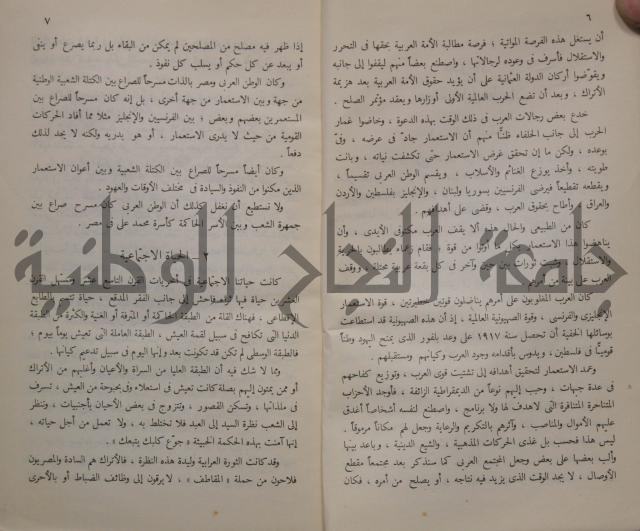 ٦
أن يستغل هذه الفرصة المواتية ؛ فرصة مطالبة الأمة العربية بحقها فى التحرر
والاستقلال فأسرف فى وعوده لرجالاتها ، واصطنع بعضاً منهم ليقفوا إلى جانبه
ويقوّضوا أركان الدولة العثمانية على أن يؤيد حقوق الأمة العربية بعد هزيمة
الأتراك ، وبعد أن تضع الحرب العالمية الأولى أوزارها ويعقد مؤتمر الصلح .
خدع بعض رجالات العرب فى ذلك الوقت بهذه الدعوة ، وخاضوا غمار
الحرب إلى جانب الحلفاء ظنًّا منهم أن الاستعمار جادّ فى عرضه ، وفىّ
بوعده ، ولكن ما إن تحقق غرض الاستعمار حتى تكشفت نياته ، وبانت
طويته ، وأخذ يوزع الغنائم والأسلاب ، ويقسم الوطن العربى تقسيماً ،
ويقطعه تقطيعاً فيرضى الفرنسيين بسوريا ولبنان ، والإنجليز بفلسطين والأردن
والعراق ، وأطاح بحقوق العرب ، وقضى على أهدافهم .
كان من الطبيعى والحال هذه ألا يقف العرب مكتوفى الأيدى ، وأن
يناهضوا هذا الاستعمار بكل ما أوتوا من قوة ، فقام زعماء يطالبون بالحرية
والاستقلال وشبت ثورات بين حين وآخر فى كل بقعة عربية محتلة ، ووقف
العرب على بينة من أمرهم .
كان العرب المغلوبون على أمرهم يناضلون قوتين خطيرتين ، قوة الاستعمار
الإنجليزى والفرنسى ، وقوة الصهيونية العالمية ، إذ أن هذه الصهيونية قد استطاعت
بوسائلها الخفية أن تحصل سنة ١٩١٧ على وعد بلفور الذى يمنح اليهود وطناً
قوميًّا فى فلسطين ، ويدوس بأقدامه وجود العرب وكيانهم ومستقبلهم .
وعمد الاستعمار لتحقيق أهدافه إلى تشتيت قوى العرب ، وتوزيع كفاحهم
فى عدة جبهات ، وحبب إليهم نوعاً من الديمقراطية الزائفة ، فأوجد الأحزاب
المتناحرة المتنافرة التى لاهدف لها ولا برنامج ، واصطنع لنفسه أشخاصاً أغدق
عليهم الأموال والمناصب ، وآثرهم بالتكريم والرعاية وجعل لهم مكاناً مرموقاً .
ليس هذا فحسب بل غذى الحركات المذهبية ، والشيع الدينية ، وباعد بينها
وألب بعضها على بعض وجعل المجتمع العربى كما سنذكر بعد مجتمعاً مقطع
الأوصال ، لا يجد الوقت الذى يزيد فيه نتاجه ، أو يصلح من أمره ، فكان
٧
إذا ظهر فيه مصلح من المصلحين لم يمكن من البقاء بل ربما يصرع أو ينفى
أو يبعد عن كل حكم أو يسلب كل نفوذ .
وكان الوطن العربى ومصر بالذات مسرحاً للصراع بين الكتلة الشعبية الوطنية
من جهة وبين الاستعمار من جهة أخرى ، بل إنه كان مسرحاً للصراع بين
المستعمرين بعضهم وبعض ؛ بين الفرنسيين والإنجليز مثلا مما أفاد الحركات
القومية من حيث لا يدرى الاستعمار ، أو هو يدريه ولكنه لا يجد لذلك
دفعاً .
وكان أيضاً مسرحاً للصراع بين الكتلة الشعبية وبين أعوان الاستعمار
الذين مكنوا من النفوذ والسيادة فى مختلف الأوقات والعهود .
ولا نستطيع أن نغفل كذلك أن الوطن العربى كان مسرح صراع بين
جمهرة الشعب وبين الأسر الحاكمة كأسرة محمد على فى مصر .
٢ – الحياة الاجتماعية
كانت حياتنا الاجتماعية فى أخريات القرن التاسع عشر ومستهل القرن
العشرين حياة فيها ترف فاحش إلى جانب الفقر المدقع ، حياة تتسم بالطابع
الإقطاعى ، فهناك القلة من الطبقة الحاكمة أو المترفة أو الغنية والكثرة من الطبقة
الدنيا التى تكافح فى سبيل لقمة العيش ، الطبقة العاملة التى تعيش يوماً بيوم ؛
فالطبقة الوسطى لم تكن قد تكونت بعد وإنها اليوم فى سبيل تدعيم كيانها .
ومما لا شك فيه أن الطبقة العليا من السراة والأعيان وأغلبهم من الأتراك
أو ممن يمتون إليهم بصلة كانت تعيش فى استعلاء وفى بحبوحة من العيش ، تسرف
فى ملذاتها ، وتسكن القصور ، وتتزوج فى بعض الأحيان بأجنبيات ، وتنظر
إلى الشعب نظرة السيد إلى العبد فلا تختلط به ، ولا تعمل من أجل حياته ،
إنها آمنت بهذه الحكمة الخبيثة « جوّع كلبك يتبعك » .
وقد كانت الثورة العرابية وليدة هذه النظرة ، فالأتراك هم السادة والمصريون
فلاحون من حملة « المقاطف » ، لا يرقون إلى وظائف الضباط أو بالأحرى
جامعة النجاح الوطنية